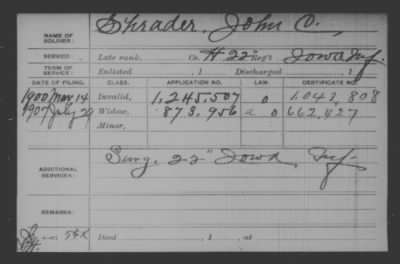 NAME OF SOLDIER: Shrader, John C.,
SERVICE: Late rank, Co. H 22" Reg't Iowa Inf.
TERM OF SERVICE: Enlisted , 1 Discharged , 1
DATE OF FILING. CLASS. APPLICATION NO. LAW. CERTIFICATE NO.
1900 Mar 14 Invalid, 1,245,507 o 1,043,808
1907 July 29 Widow, 873,956 o 662,427
Minor,
ADDITIONAL SERVICES: Surg. 22" Iowa Inf.
REMARKS:
Died , 1 , at